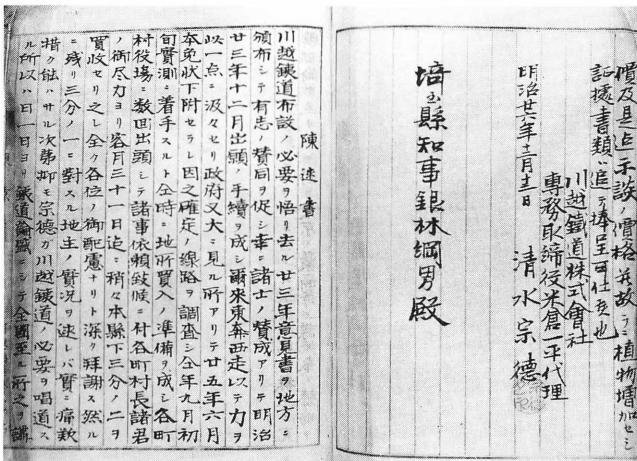 價及是迠示談ノ價格並故ラニ植物増加セシ
証據書類ハ追テ捧呈可仕候也
川越鐵道株式會社
専務取締役米倉一平代理
明治廿六年十二月十三日
清水宗德
埼玉縣知事銀林綱男殿
陳述書
川越鐵道布設ノ必要ヲ悟リ去ル廿三年意見書ヲ地方ニ
頒布シテ有志ノ賛同ヲ促シ幸ニ諸士ノ賛成アリテ明治
廿三年十二月出願ノ手續ヲ成シ爾來東奔西走以テ力ヲ
以一点ニ汲々セリ政府又大ニ見ル所アリテ廿五年六月
本免狀下附セラレ因之確定ノ線路ヲ調査シ仝年九月初
旬實測ニ着手スルト仝時ニ地所買入ノ準備ヲ成シ各町
村役場ニ数回出頭シテ諸事依賴致候ニ付各町村長諸君
ノ御尽力ヨリ客月三十一日迠ニ稍々本縣下三分ノ二ヲ
買收セリ之レ全ク各位ノ御配慮ナリト深ク拜謝ス然ル
ニ残リ三分ノ一ニ對スル地主ノ實況ヲ述レバ實ニ痛歎
措ク能ハサル次第抑モ宗德ガ川越鐵道ノ必要ヲ唱道ス
ル所以ハ曰一日ヨリ鐵道論盛ニシテ全國至ル所之ヲ講